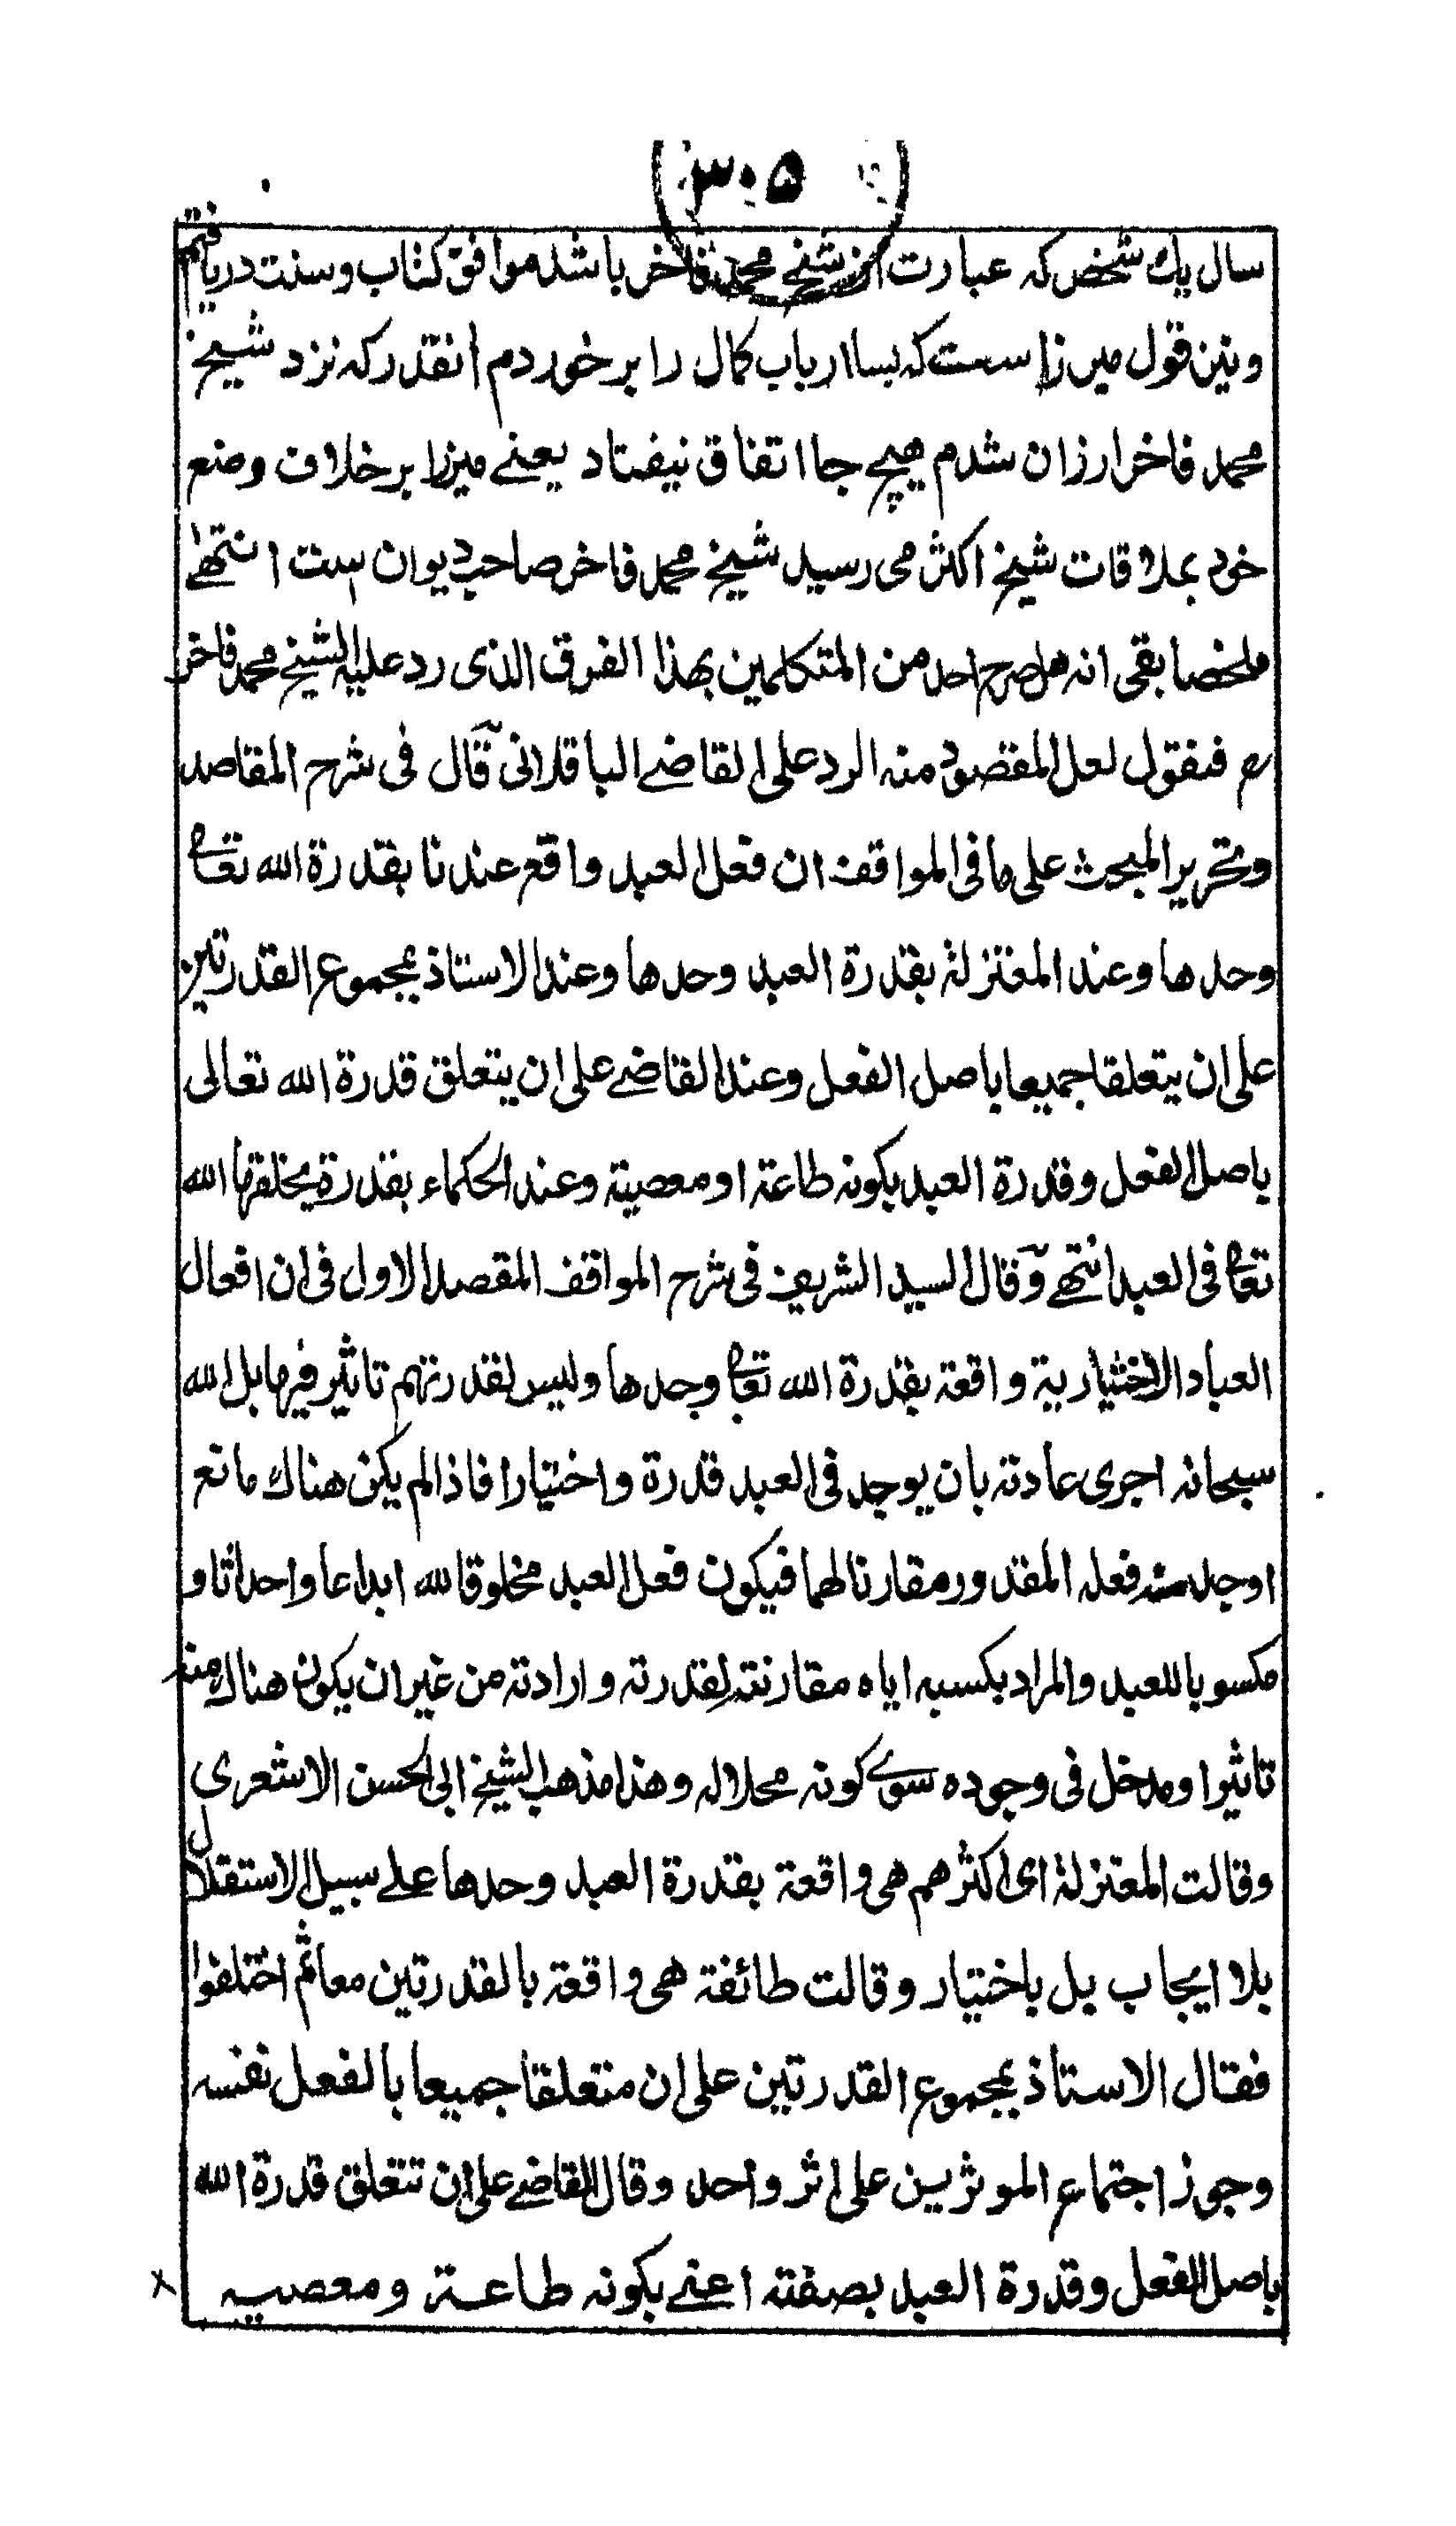 ۳۰۵
سال یک شخص کہ عبارت از شیخ محمد فاخر باشد موافق کتاب و سنت دریافتم
ونیز قول میرزا ست کہ بسا ارباب کمال را برخوردم آنقدر کہ نزد شیخ
محمد فاخر ارزان شدم ھیچ جا اتفاق نیفتاد یعنے میرزا برخلاف وضع
خود بملاقات شیخ اکثر می رسید شیخ محمد فاخر صاحب دیوان ست انتھے
ملخصا بقی انہ ھل صرح احد من المتکلمین بھذا الفرق الذی رد علیہ الشیخ محمد فاخر
رح فنقول لعل المقصود منہ الرد علی القاضے الباقلانی قال فی شرح المقاصد
وتحریر المبحث علی ما فی المواقف ان فعل العبد واقع عندنا بقدرة اللہ تعالے
وحدھا وعند المعتزلة بقدرة العبد وحدھا وعند الاستاذ بمجموع القدرتین
علی ان یتعلقا جمیعا باصل الفعل وعند القاضے علی ان یتعلق قدرة اللہ تعالی
باصل الفعل وقدرة العبد بکونہ طاعتہ او معصیتہ وعند الحکماء بقدرة یخلقھا اللہ
تعالے فی العبد انتھے وقال السید الشریف فی شرح المواقف المقصد الاول فی ان افعال
العباد الاختیاریة واقعة بقدرة اللہ تعالے وحدھا ولیس لقدرتھم تاثیر فیھا بل اللہ
سبحانہ اجری عادتہ بان یوجد فی العبد قدرة واختیارا فاذا لم یکن ھناك مانع
اوجد منہ فعلہ المقدور مقارنا لھما فیکون فعل العبد مخلوقا للہ ابداعا واحداثا و
مکسوبا للعبد والمراد بکسبہ ایاہ مقارنتہ لقدرتہ وارادتہ من غیر ان یکون ھناك منہ
تاثیر او مدخل فی وجودہ سوے کونہ محلا لہ وھذا مذھب الشیخ ابی الحسن الاشعری
وقالت المعتزلة ای اکثرھم ھی واقعة بقدرة العبد وحدھا علے سبیل الاستقلال
بلا ایجاب بل باختیار وقالت طائفة ھی واقعة بالقدرتین معا ثم اختلفوا
فقال الاستاذ بمجموع القدرتین علی ان متعلقا جمیعا بالفعل نفسہ
وجوز اجتماع الموثرین علی اثر واحد وقال القاضے علی ان تتعلق قدرة اللہ
باصل الفعل وقدرة العبد بصفتہ اعنے بکونہ طاعة ومعصیہ